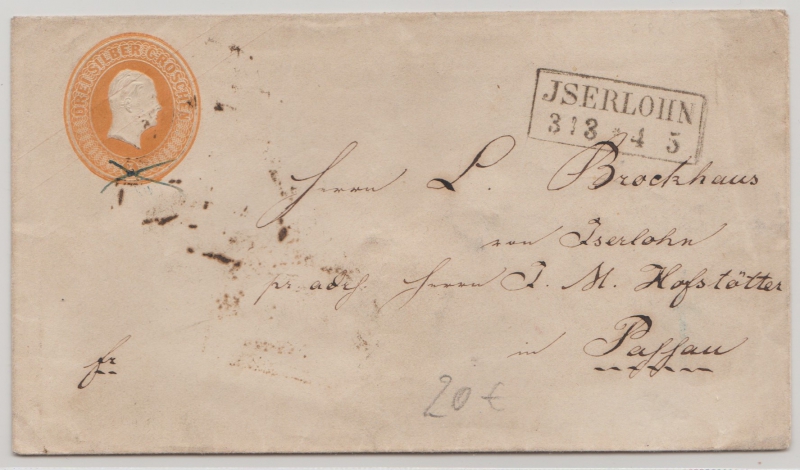 DREI SILBERGROSCHEN
JSERLOHN
4 5
Herrn L. Brockhaus
von Iserlohn
pr adr. Herrn J. M. Hofstötter
in Passau
fr
20 €